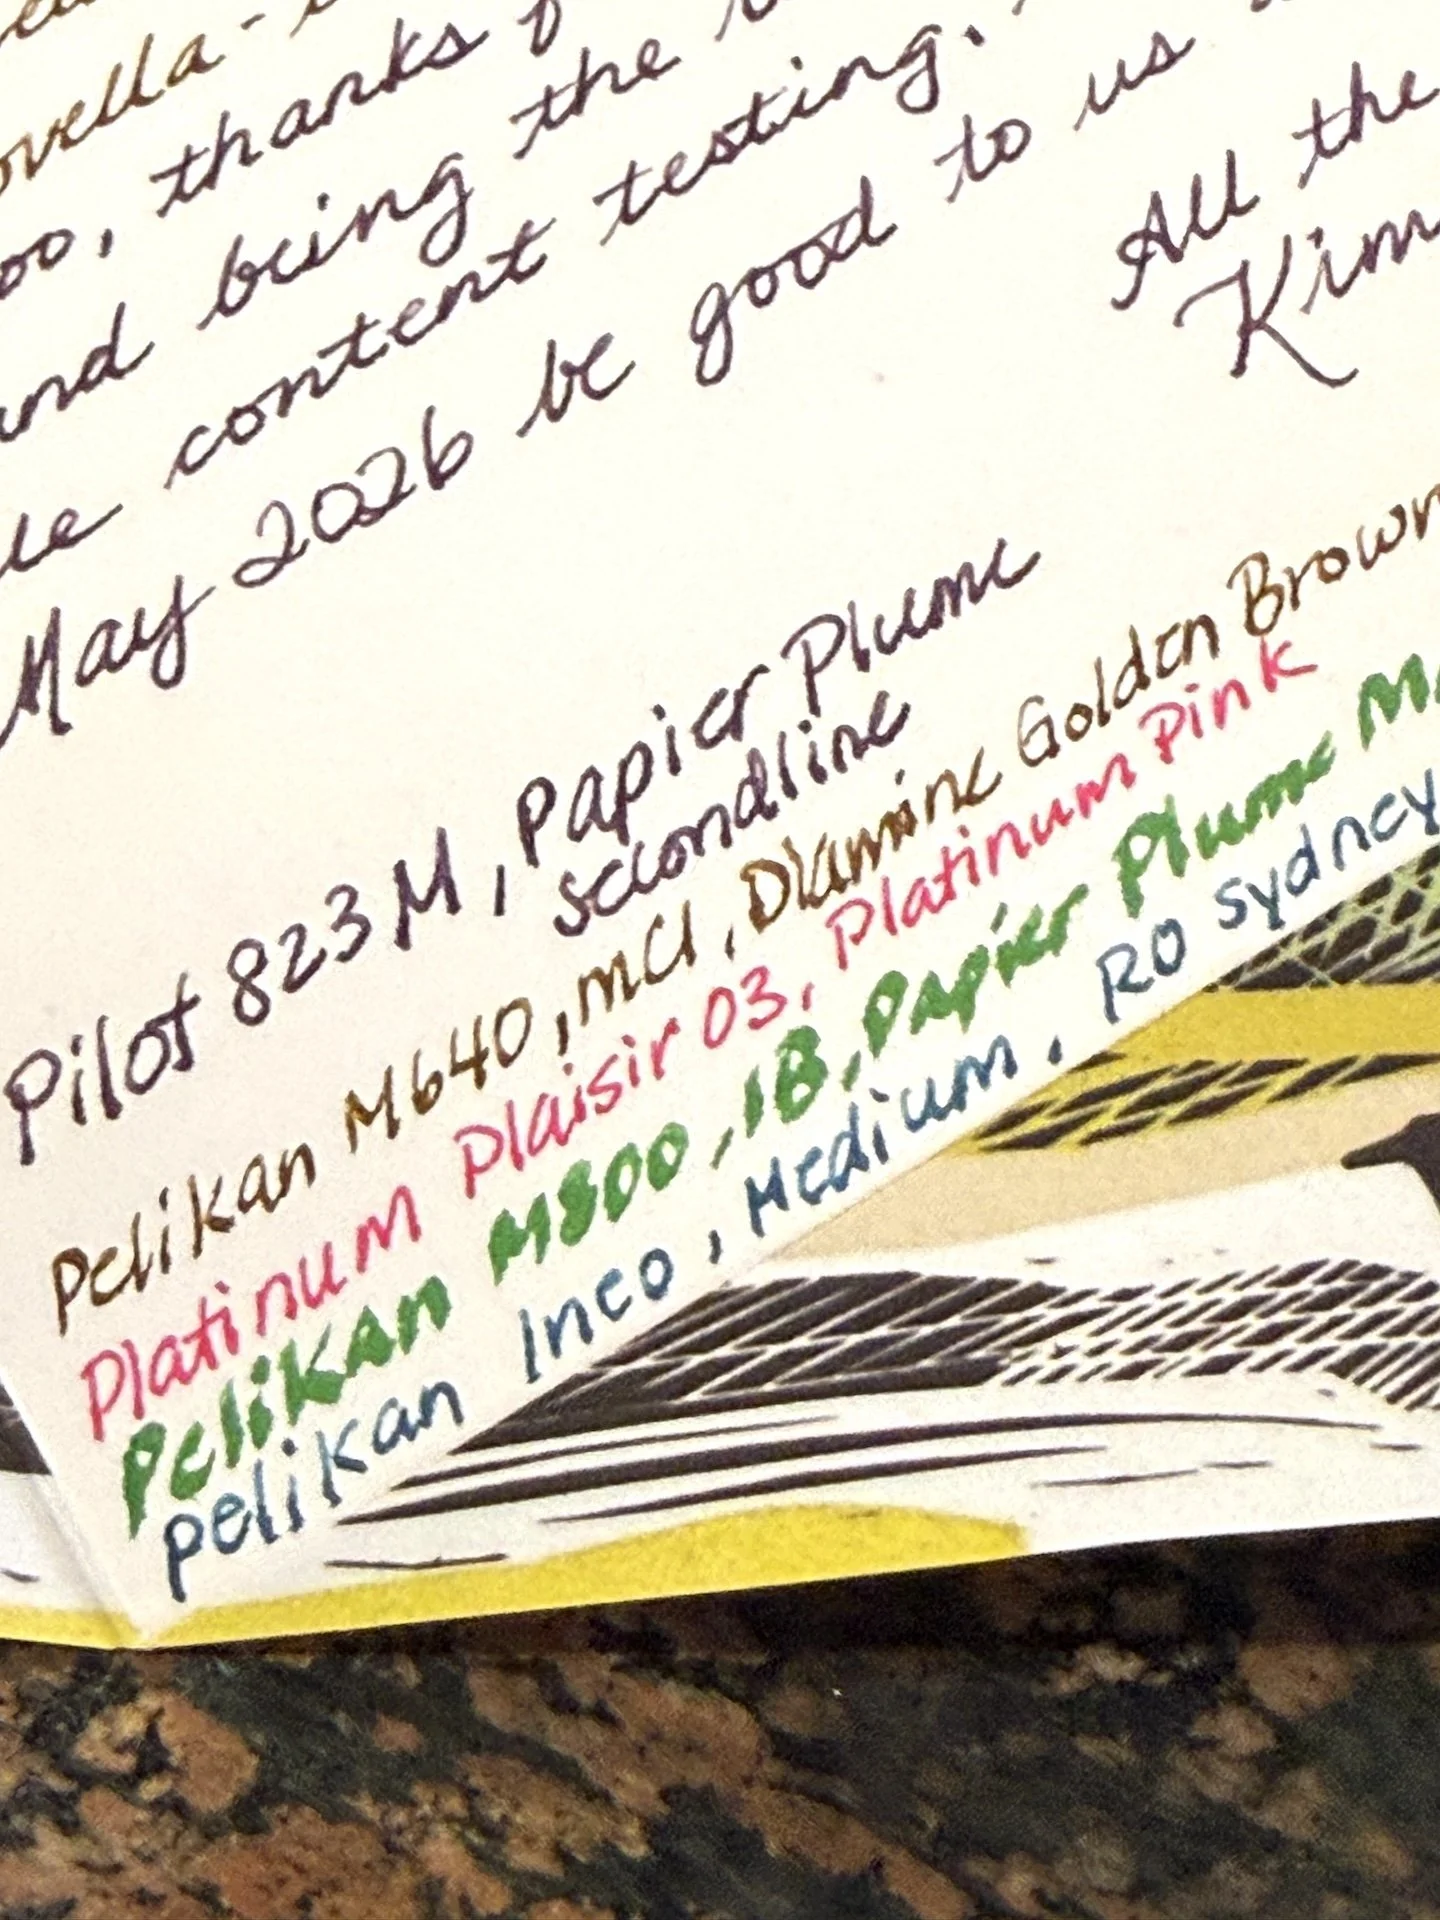 ovella-
oo, thanks
and being the
le content testing.
May 2026 be good to us
All the
Kim
Pilot 823 M, Papier Plume
secondline
Pelikan M640, MCI, Diamine Golden Brown
Platinum Plaisir 03, Platinum Pink
Pelikan M800, IB, Papier Plume
Pelikan Ineo, Medium, RO Sydney